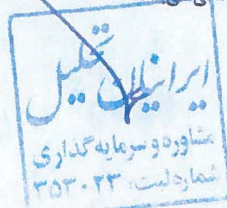 ایرانیان تحلیل
مشاوره و سرمایه گذاری
شماره ثبت: ۳۵۳۰۲۳